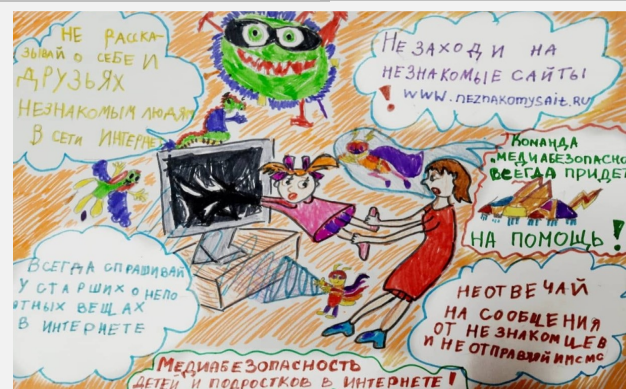 НЕ РАССКА-
ЗЫВАЙ О СЕБЕ И
ДРУЗЬЯХ
НЕЗНАКОМЫМ ЛЮДЯМ
В СЕТИ ИНТЕРНЕТ
НЕ ЗАХОДИ НА
НЕЗНАКОМЫЕ САЙТЫ
! WWW.NEZNAKOMYSAIT.RU
КОМАНДА
„МЕДИАБЕЗОПАСНО
ВСЕГДА ПРИДЕТ
НА ПОМОЩЬ!
ВСЕГДА СПРАШИВАЙ
У СТАРШИХ О НЕПО
ЯТНЫХ ВЕЩАХ
В ИНТЕРНЕТЕ
НЕОТВЕЧАЙ
НА СООБЩЕНИЯ
ОТ НЕЗНАКОМЦЕВ
И НЕ ОТПРАВЛЯЙ ИМ СМС
МЕДИАБЕЗОПАСНОСТЬ
ДЕТЕЙ И ПОДРОСТКОВ В ИНТЕРНЕТЕ!